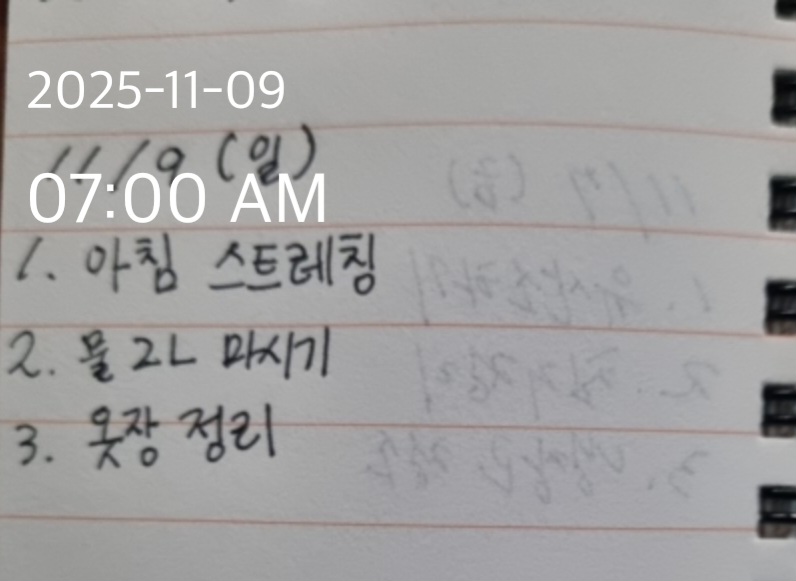 2025-11-09
11/9 (일)
07:00 AM
1. 아침 스트레칭
2. 물 2L 마시기
3. 옷장 정리
11/7 (금)